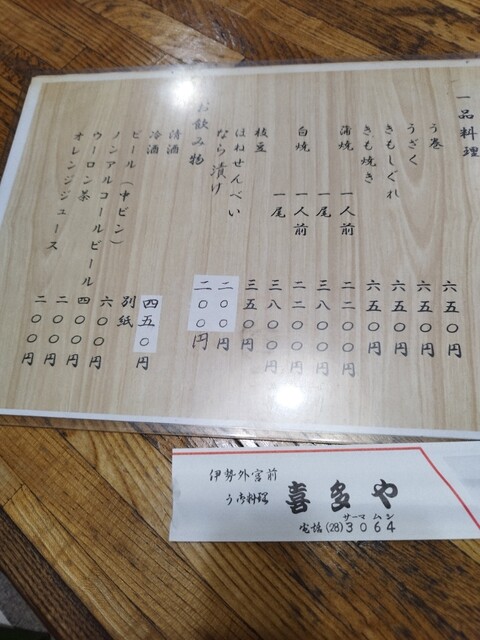 一品料理
う巻 六五〇円
うざく 六五〇円
きもしぐれ 六五〇円
きも焼き 六五〇円
蒲焼 一人前 二二〇〇円
一尾 三八〇〇円
白焼 一人前 二二〇〇円
一尾 三八〇〇円
枝豆 三五〇円
ほねせんべい 二〇〇円
なら漬け 二〇〇円
お飲み物
清酒 四五〇円
冷酒 別紙
ビール(中ビン) 六〇〇円
ノンアルコールビール 四〇〇円
ウーロン茶 二〇〇円
オレンジジュース 二〇〇円
伊勢外宮前
料理
喜多や
サーマ
電話(28)3064